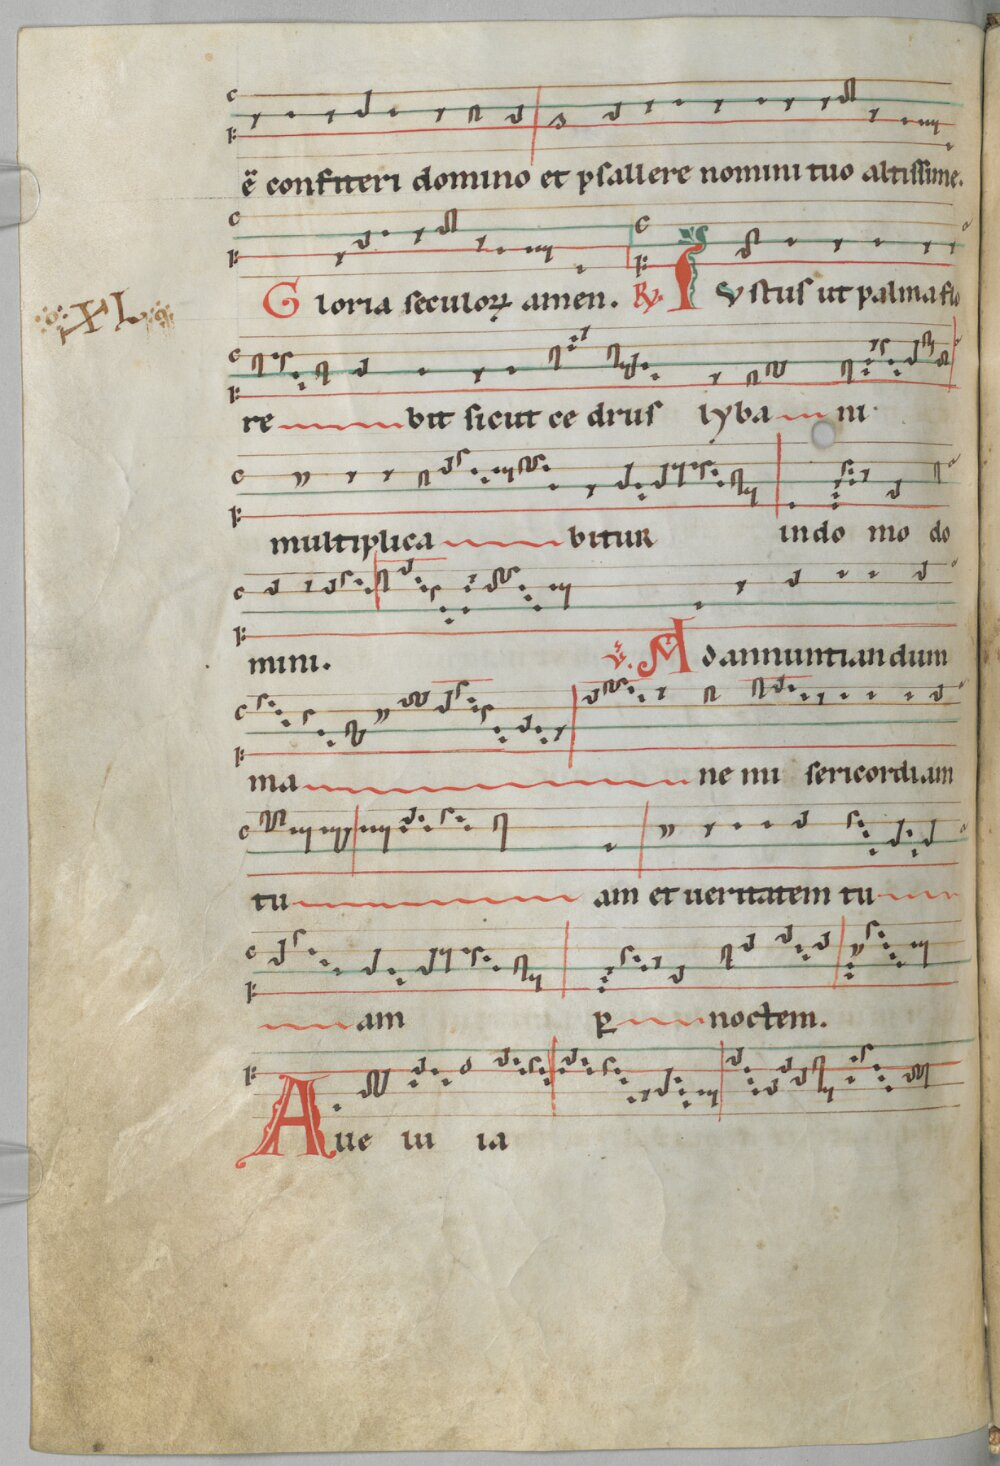 ē confiteri domino et psallere nomini tuo altissime.
Gloria seculoꝝ amen. ℟. Iustus ut palma flo
XL
re bit sicut ce drus lyba ni
multiplica bitur indo mo do
mini. ℣. Ad annuntiandum
ma ne mi sericordiam
tu am et ueritatem tu
am ꝑ noctem.
A lle lu ia